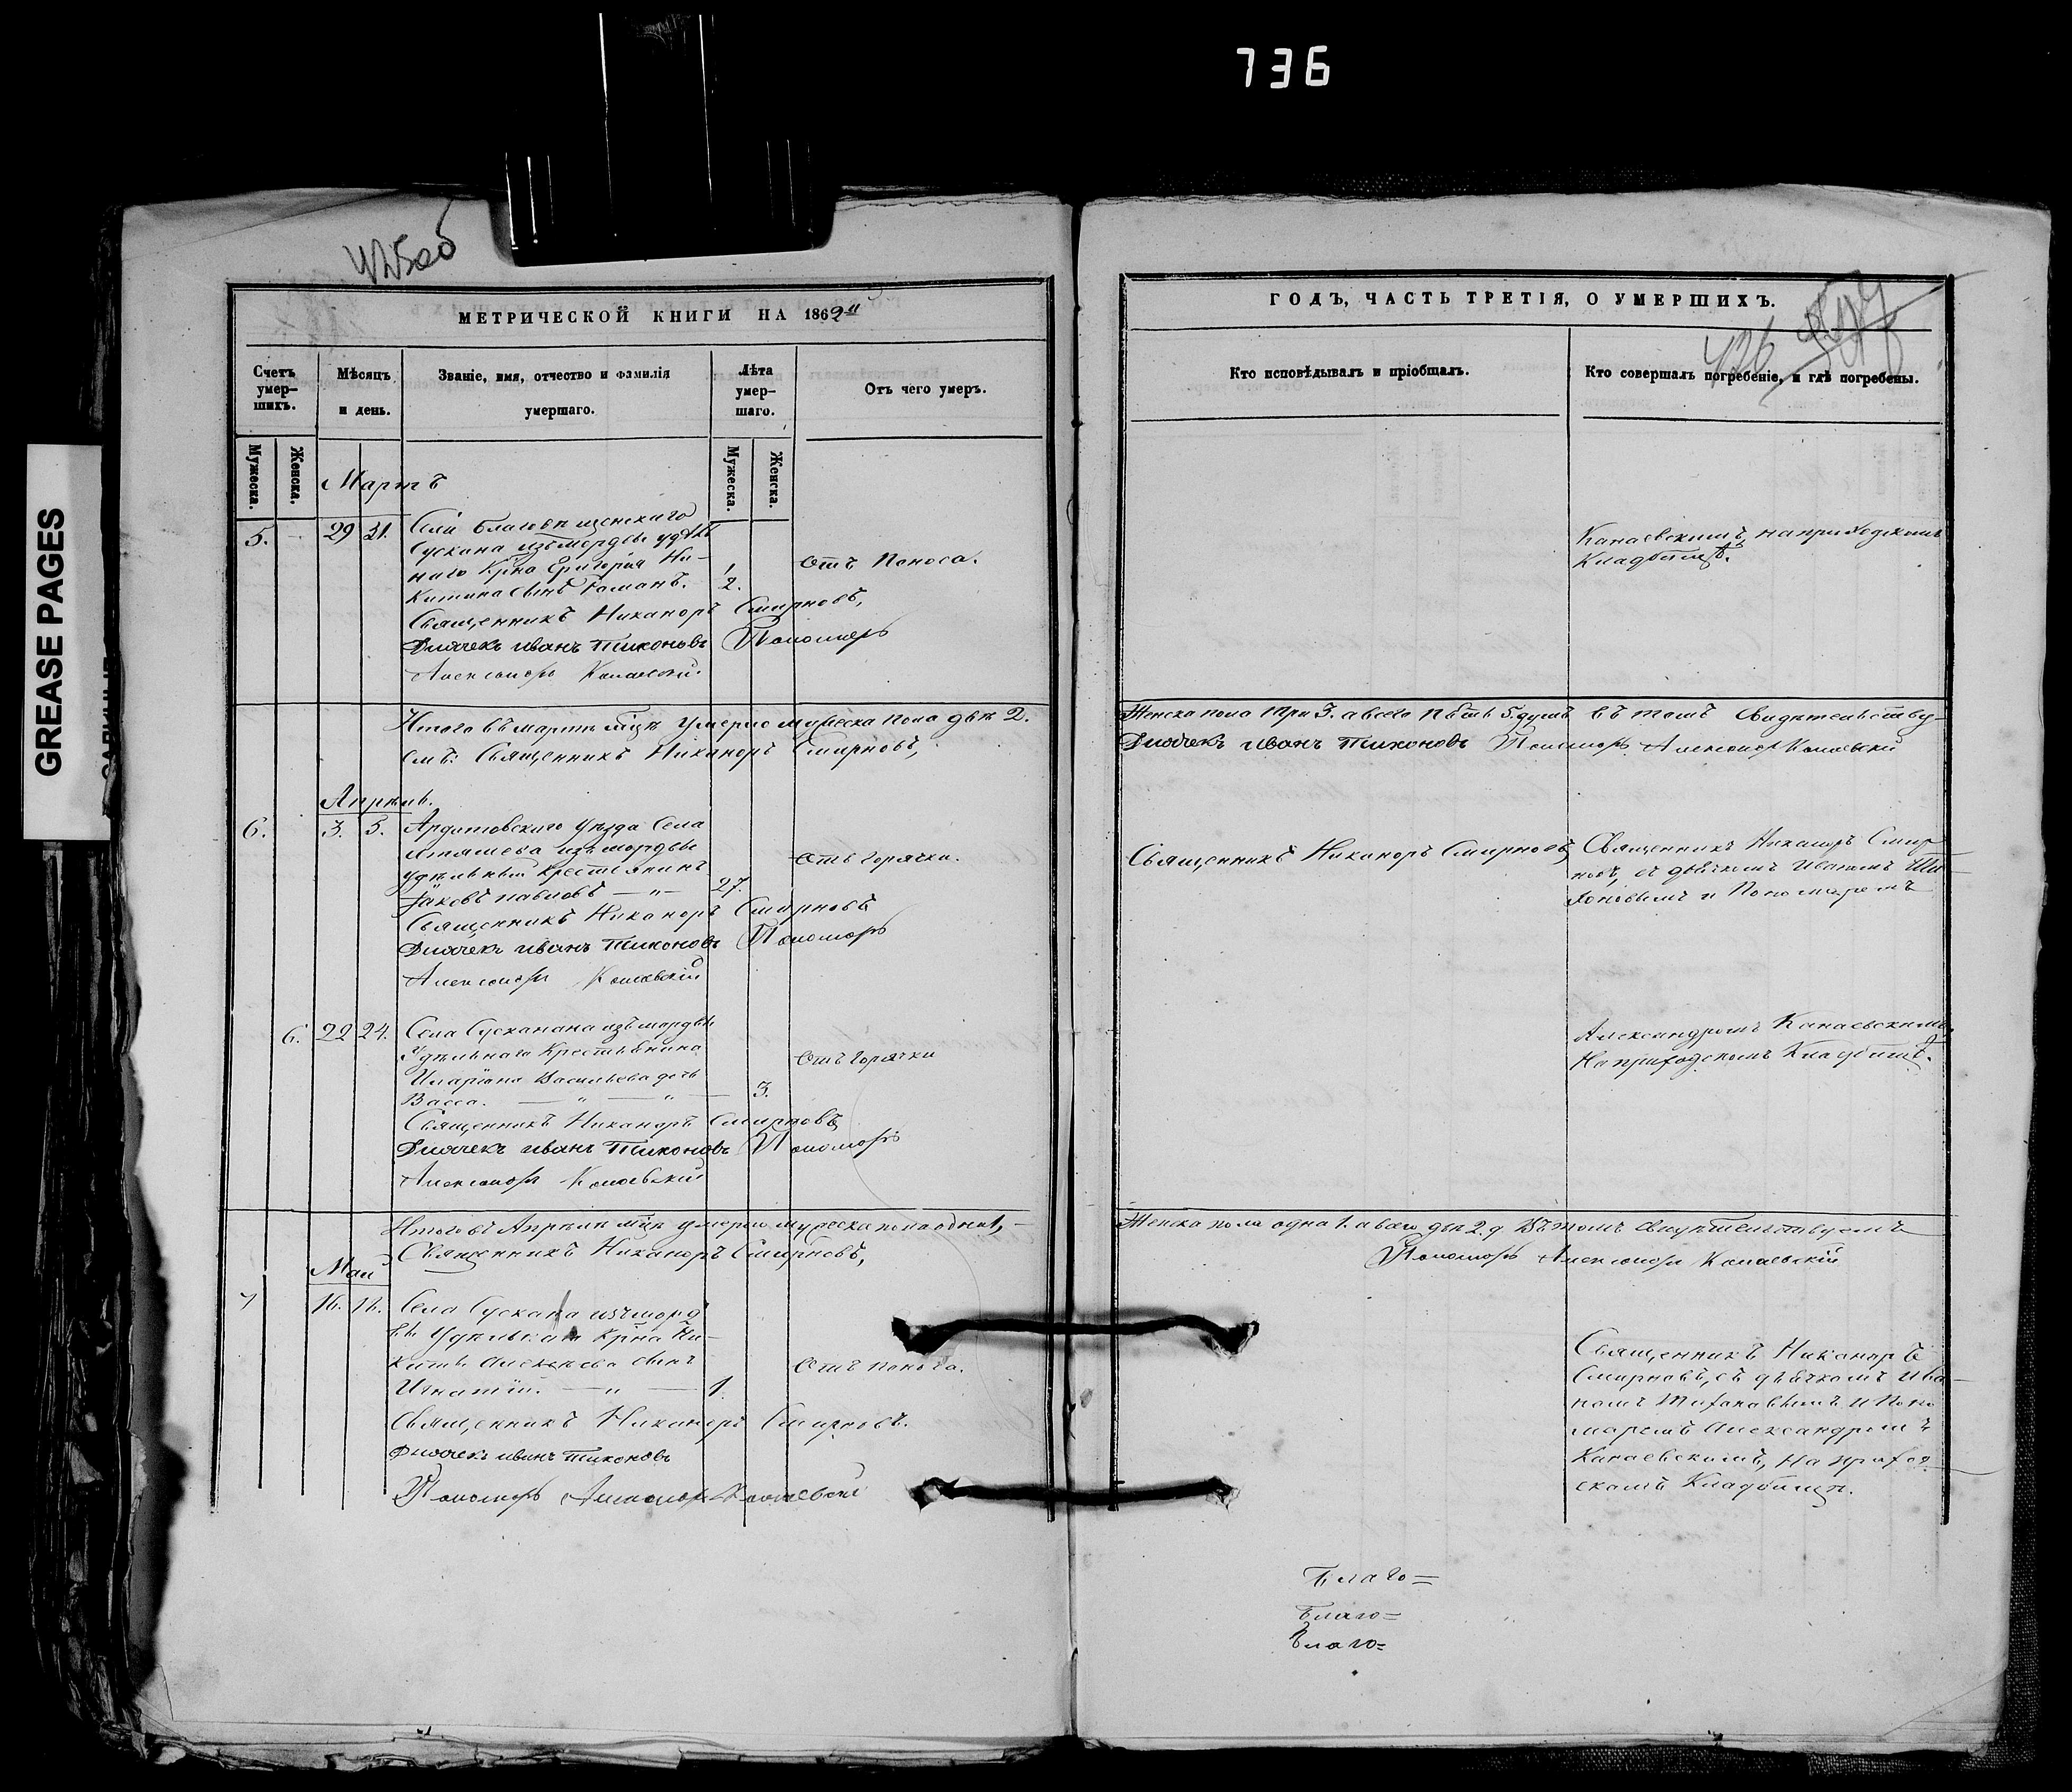 736
GREASE PAGES
425 об
МЕТРИЧЕСКОЙ КНИГИ НА 1862й
Счетъ умер-шихъ.
Мѣсяцъ и день.
Званіе, имя, отчество и фамилія умершаго.
Лѣта умер-шаго.
Отъ чего умеръ.
Мужеска.
Женска.
Мужеска.
Женска.
Мартъ
5. 29 31. Села Благовѣщенскаго
Сускана изъ мордвы удѣль
наго Крна Григорія Ни-
китина сынъ Романъ. 2. Отъ Поноса.
Священникъ Никаноръ Смирновъ,
Дьячекъ иванъ Тихоновъ Пономарь
Александръ Канаевскій.
Итого въ мартѣ мцѣ умерло мужеска пола двѣ 2.
Священникъ Никаноръ Смирновъ,
Апрѣль.
6. 3. 5. Ардатовскаго уѣзда Села
изъ мордвы
удѣльный крестьянинъ Отъ Горячки.
Яковъ павловъ — „ — 27.
Священникъ Никаноръ Смирновъ
Дьячекъ иванъ Тихоновъ Пономарь
Александръ Канаевскій
6. 22 24. Села Сускана изъ мордвы
Удѣльнаго Крестьянина Отъ Горячки
Иларіона Васильева дочь
Васса. — „ — „ — 3.
Священникъ Никаноръ Смирновъ
Дьячекъ иванъ Тихоновъ Пономарь
Александръ Канаевскій
Итого въ Апрѣлѣ мцѣ умерло мужеска пола одинъ 1,
Священникъ Никаноръ Смирновъ,
Май
7 16. 16. Села Сускана изъ морд
вы Удѣльнаго Крна Ни-
киты Алексѣева сынъ Отъ поноса.
Игнатій. — „ — 1.
Священникъ Никаноръ Смирновъ.
Дьячекъ иванъ Тихоновъ
Пономарь Александръ Канаевскій
ГОДЪ, ЧАСТЬ ТРЕТІЯ, О УМЕРШИХЪ.
426
Кто исповѣдывалъ и пріобщалъ.
Кто совершалъ погребеніе, и гдѣ погребены.
Канаевскимъ, на приходскомъ
Кладбищѣ.
Женска пола три 3. а всего пять 5. душъ въ томъ Свидѣтельству-
Дьячекъ иванъ Тихоновъ Пономарь Александръ Канаевскій
Священникъ Никаноръ Смирновъ,
Священникъ Никаноръ Смир
новъ, съ дьячкомъ Иваномъ Ти-
хоновымъ и Пономаремъ
Александромъ Канаевскимъ.
На приходскомъ Кладбищѣ.
Женска пола одна 1. а всего двѣ 2. д Въ томъ свидѣтельствуемъ
Пономарь Александръ Канаевскій
Священникъ Никаноръ
Смирновъ, съ дьячкомъ Ива-
номъ Тихановымъ и Поно
маремъ Александромъ
Канаевскимъ, на приход-
скомъ Кладбищѣ.
Благо=
Благо=
Благо=